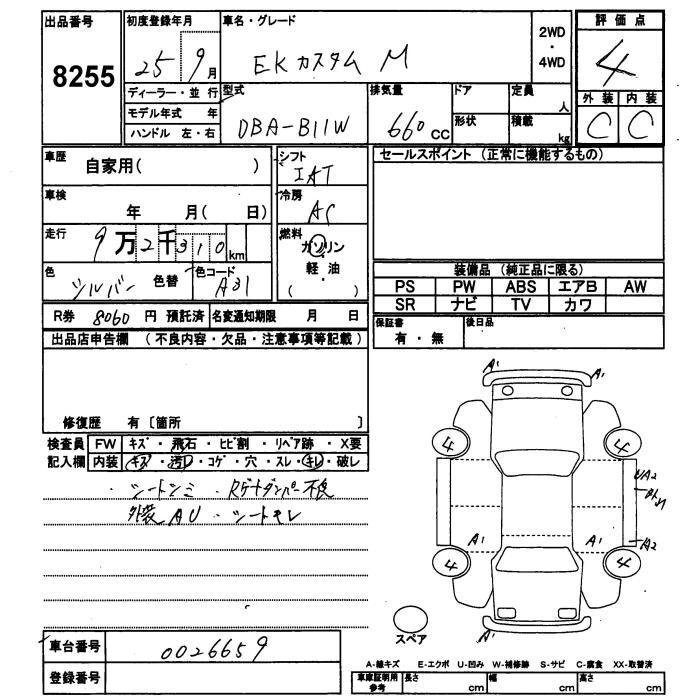 出品番号
8255
初度登録年月
25 9月
車名・グレード
EKカスタム M
2WD
・
4WD
評価点
4
外装 内装
C C
ディーラー・並行
モデル年式 年
ハンドル 左・右
型式
DBA-B11W
排気量
660cc
ドア
形状
定員
人
積載
kg
車歴
自家用( )
シフト
IAT
セールスポイント (正常に機能するもの)
車検
年 月( 日)
冷房
AC
走行
9万2千310km
燃料
ガソリン
・
軽油
( )
色
シルバー
色替
色コード
A31
装備品 (純正品に限る)
PS PW ABS エアB AW
SR ナビ TV カワ
R券 8060円 預託済
名変通知期限 月 日
保証書
有・無
後日品
出品店申告欄 (不良内容・欠品・注意事項等記載)
修復歴 有〔箇所 〕
検査員 FW キズ・飛石・ヒビ割・リペア跡・X要
記入欄 内装 キズ・汚レ・コゲ・穴・スレ・キレ・破レ
・シートシミ・Rゲートダンパー不良
外装AU・シートキレ
A1 A1
4 4
A1 A1
A2
4 4
A1
スペア
車台番号
0026659
登録番号
A-線キズ E-エクボ U-凹み W-補修跡 S-サビ C-腐食 XX-取替済
車庫証明用
参考
長さ cm 幅 cm 高さ cm